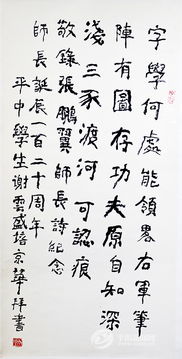 字學何處能領畧右軍筆
陣有圖存功夫原自知深
淺三豕渡河可認痕
敬錄張鵬翼師長詩紀念
師長誕辰一百二十周年
平中學生謝雲盛培京華拜書